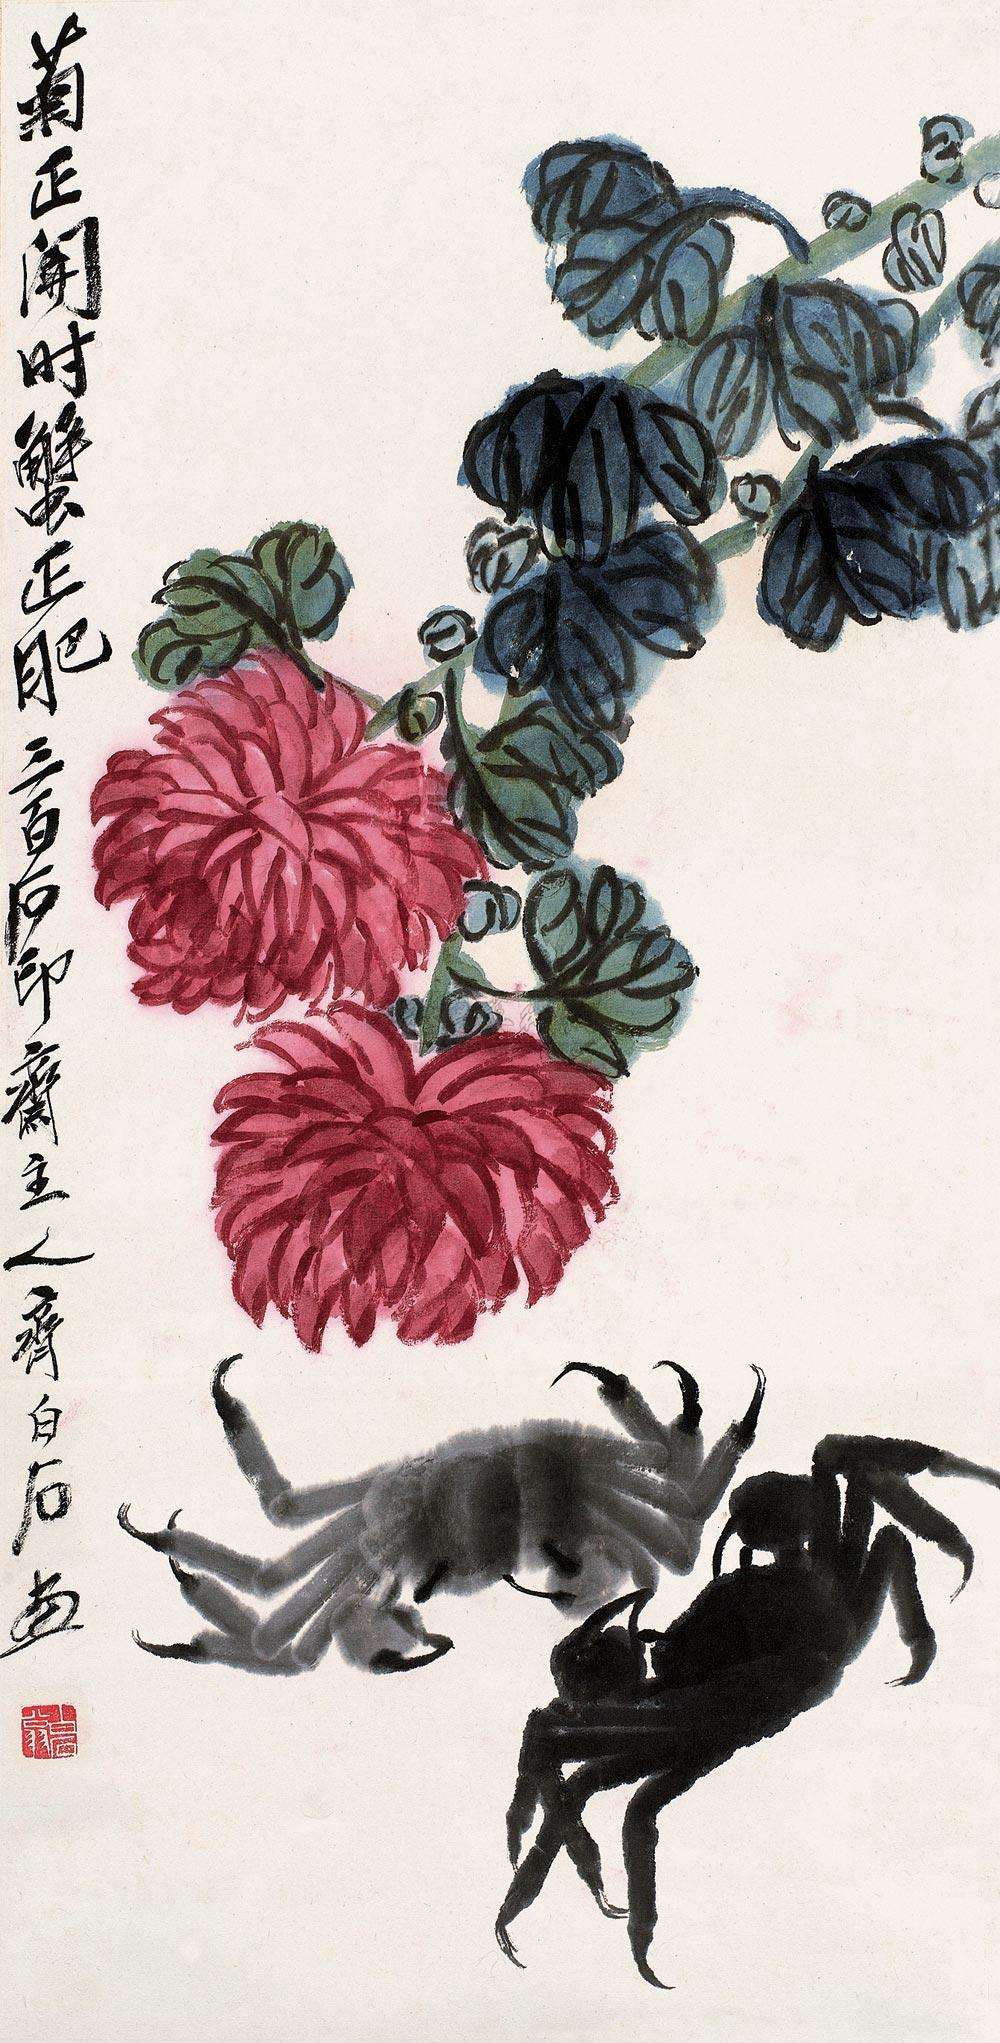 菊正開时蟹正肥三百石印齋主人齊白石画